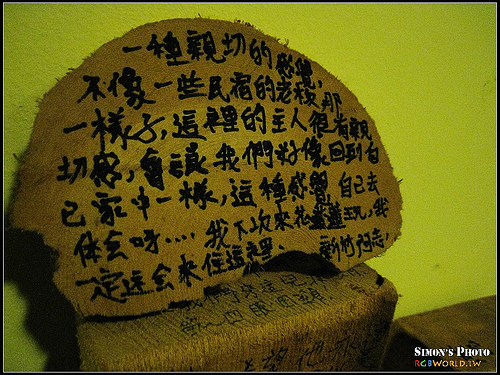 一種親切的感覺,
不像一些民宿的老樣,那
一樣子,這裡的主人很有親
切感,會讓我們好像回到自
己家中一樣,這種感覺,自己去
体会呀....我下次來花蓮玩,我
一定还会來住這裡.
新竹阿志.
SIMON'S PHOTO
RGBWORLD.TW